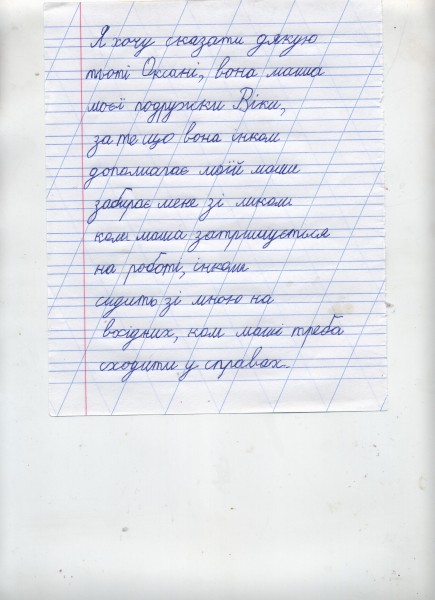 Я хочу сказати дякую
тьоті Оксані, вона мама
моєї подружки Віки,
за те що вона інколи
допомагає моїй мамі
забирає мене зі школи
коли мама затримується
на роботі, інколи
сидить зі мною на
вихідних, коли мамі треба
сходити у справах.